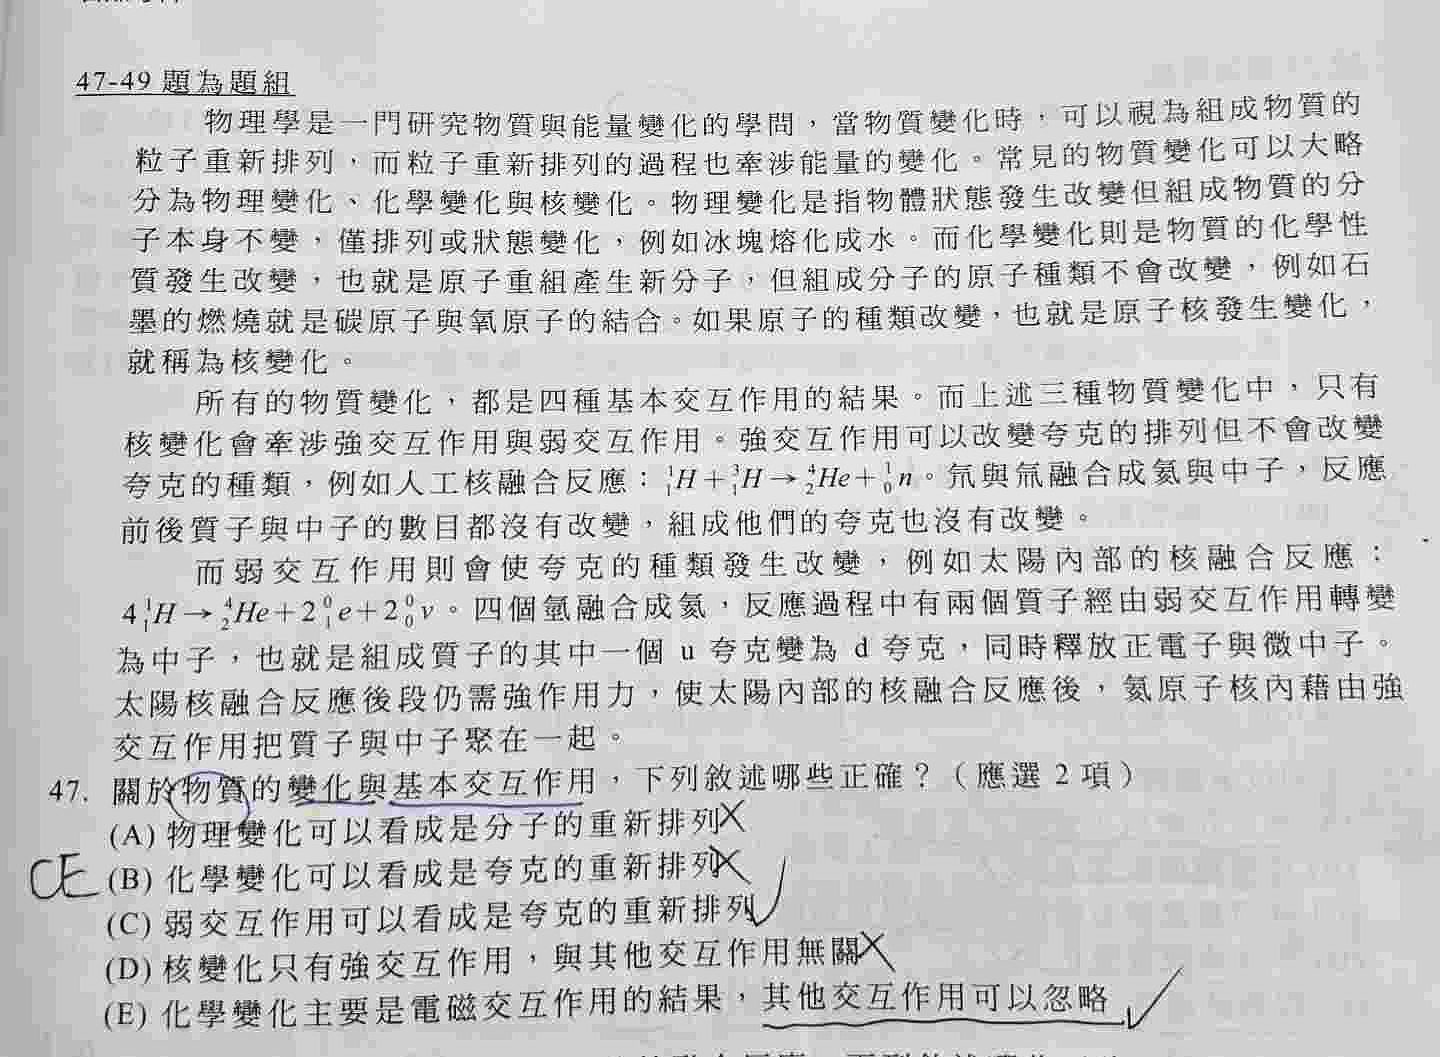 47-49 題為題組
物理學是一門研究物質與能量變化的學問，當物質變化時，可以視為組成物質的
粒子重新排列，而粒子重新排列的過程也牽涉能量的變化。常見的物質變化可以大略
分為物理變化、化學變化與核變化。物理變化是指物體狀態發生改變但組成物質的分
子本身不變，僅排列或狀態變化，例如冰塊熔化成水。而化學變化則是物質的化學性
質發生改變，也就是原子重組產生新分子，但組成分子的原子種類不會改變，例如石
墨的燃燒就是碳原子與氧原子的結合。如果原子的種類改變，也就是原子核發生變化，
就稱為核變化。
所有的物質變化，都是四種基本交互作用的結果。而上述三種物質變化中，只有
核變化會牽涉強交互作用與弱交互作用。強交互作用可以改變夸克的排列但不會改變
夸克的種類，例如人工核融合反應：¹₁H＋³₁H→⁴₂He＋¹₀n。氘與氚融合成氦與中子，反應
前後質子與中子的數目都沒有改變，組成他們的夸克也沒有改變。
而弱交互作用則會使夸克的種類發生改變，例如太陽內部的核融合反應：
4¹₁H→⁴₂He＋2⁰₁e＋2⁰₀ν。四個氫融合成氦，反應過程中有兩個質子經由弱交互作用轉變
為中子，也就是組成質子的其中一個 u 夸克變為 d 夸克，同時釋放正電子與微中子。
太陽核融合反應後段仍需強作用力，使太陽內部的核融合反應後，氦原子核內藉由強
交互作用把質子與中子聚在一起。
47. 關於物質的變化與基本交互作用，下列敘述哪些正確？（應選 2 項）
(A) 物理變化可以看成是分子的重新排列 X
CE (B) 化學變化可以看成是夸克的重新排列 X
(C) 弱交互作用可以看成是夸克的重新排列 ✓
(D) 核變化只有強交互作用，與其他交互作用無關 X
(E) 化學變化主要是電磁交互作用的結果，其他交互作用可以忽略 ✓